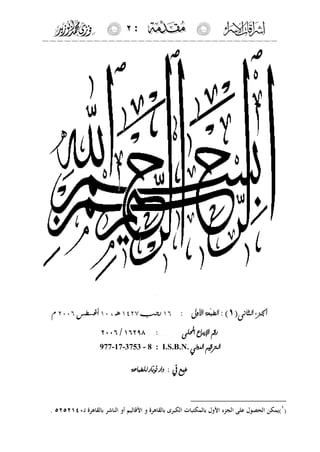 إشراقات الإسراء مقدمة : ٢ فوزي محمد أبوزيد
بسم الله الرحمن الرحيم
الجزء الثانى (١) : الطبعة الأولى : ١٦ رجب ١٤٢٧ هـ، ١٠ أغسطس ٢٠٠٦ م
رقم الإيداع المحلى : ١٦٢٩٨ / ٢٠٠٦
الترقيم الدولي I.S.B.N. : 977-17-3753 - 8
طبع في : دار نوبار للطباعة
(١) يمكن الحصول على الجزء الأول بالمكتبات الكبرى بالقاهرة و الأقاليم أو الناشر بالقاهرة ت: ٥٢٥٢١٤٠ .